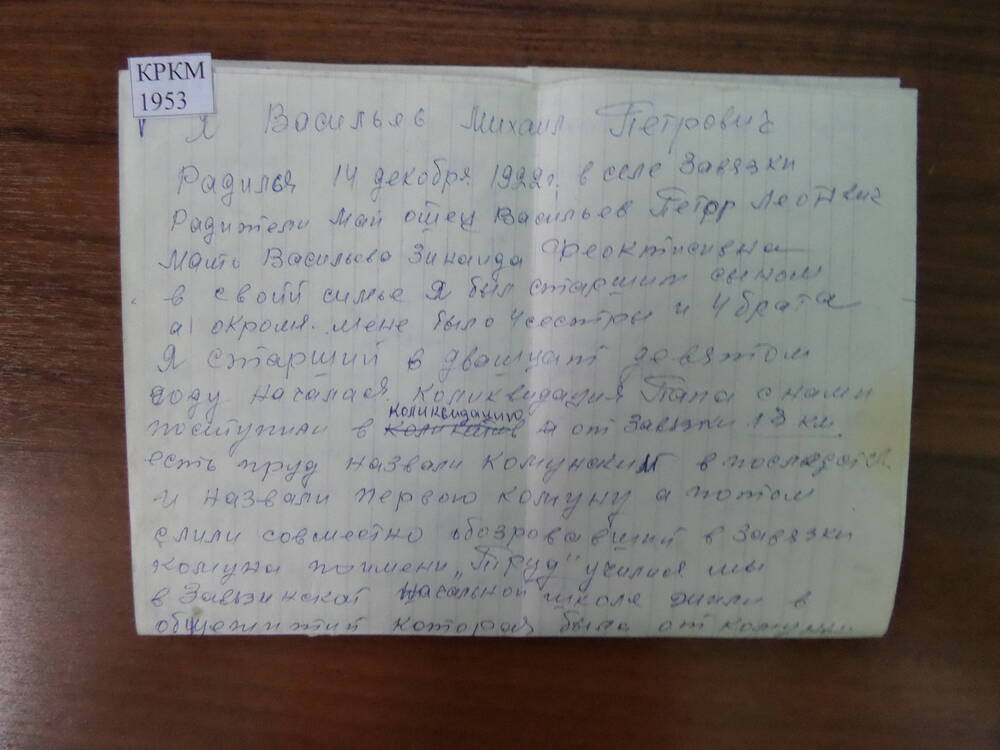 КРКМ
1953
Я Васильяв Михаил Петрович
Радился 14 декобря 1922г. в селе Завязки
Радители Май отец Васильев Пётр
Мать Васильева Зинаида Феоктисивна
в своий симье Я был старшим сыном
а окромя мене было 4 сестры и 4 брата
Я старший в двацат девятом
году началася Коликвидация Папа с нами
поступили в коликвидацию а от Завязки 13 км
есть пруд назвали Комунским в последстви
и назвали первою комуну а потом
слили совместно обозровавший в Завязки
комуна поимени „Труд" училися мы
в Завязинской начальной школе жили в
общежитий которая была от комуны